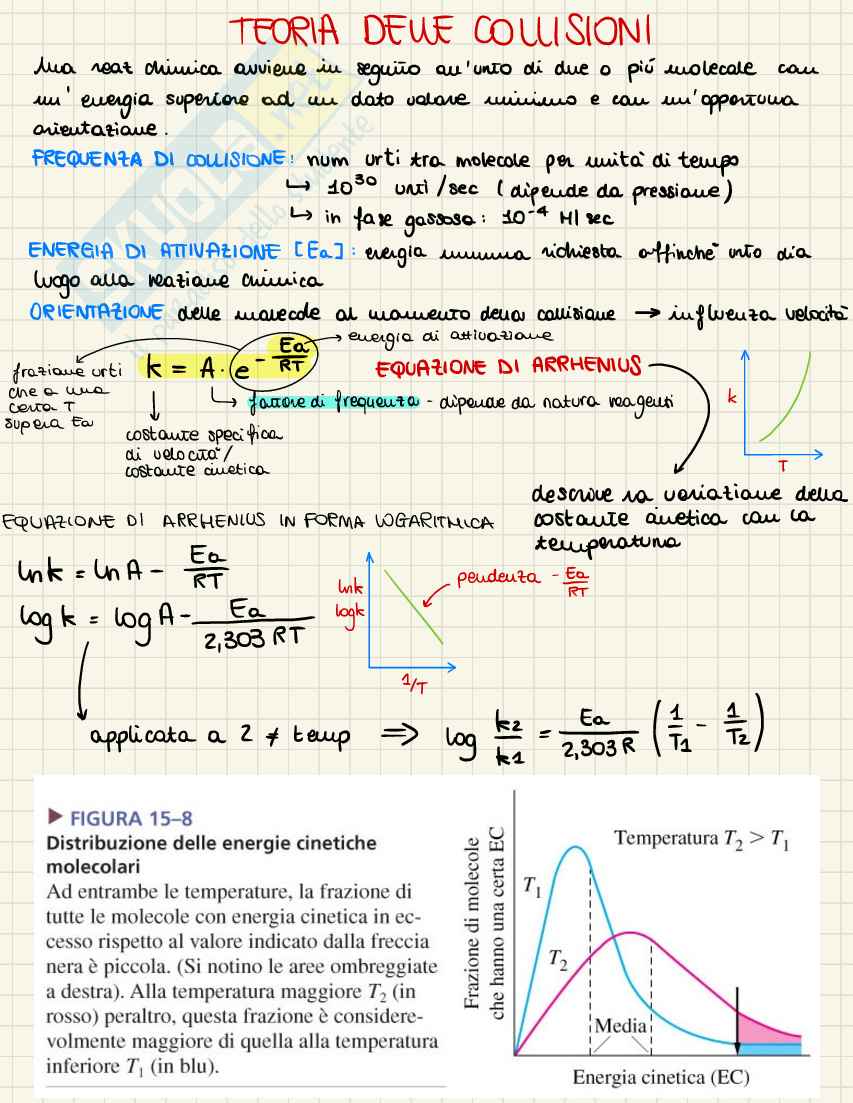 TEORIA DELLE COLLISIONI
Una reaz chimica avviene in seguito all'urto di due o più molecole con
un'energia superiore ad un dato valore minimo e con un'opportuna
orientazione.
FREQUENZA DI COLLISIONE: num urti tra molecole per unità di tempo
↳ 10³⁰ urti/sec (dipende da pressione)
↳ in fase gassosa: 10⁻⁴ Hl sec
ENERGIA DI ATTIVAZIONE [Ea]: energia minima richiesta affinché urto dia
luogo alla reazione chimica
ORIENTAZIONE delle molecole al momento della collisione → influenza velocità
frazione urti
che a una
certa T
supera Ea
k = A · e^(-Ea/RT)
→ energia di attivazione
EQUAZIONE DI ARRHENIUS
↳ fattore di frequenza - dipende da natura reagenti
costante specifica
di velocità/
costante cinetica
k
T
descrive la variazione della
costante cinetica con la
temperatura
EQUAZIONE DI ARRHENIUS IN FORMA LOGARITMICA
lnk = lnA - Ea/RT
logk = logA - Ea/2,303 RT
lnk
logk
pendenza - Ea/RT
1/T
applicata a 2 ≠ temp ⇒ log k2/k1 = Ea/2,303 R (1/T1 - 1/T2)
▶ FIGURA 15–8
Distribuzione delle energie cinetiche
molecolari
Ad entrambe le temperature, la frazione di
tutte le molecole con energia cinetica in ec-
cesso rispetto al valore indicato dalla freccia
nera è piccola. (Si notino le aree ombreggiate
a destra). Alla temperatura maggiore T₂ (in
rosso) peraltro, questa frazione è considere-
volmente maggiore di quella alla temperatura
inferiore T₁ (in blu).
Frazione di molecole
che hanno una certa EC
Temperatura T₂ > T₁
T₁
T₂
Media
Energia cinetica (EC)
SKUOLA.net
il paradiso dello studente